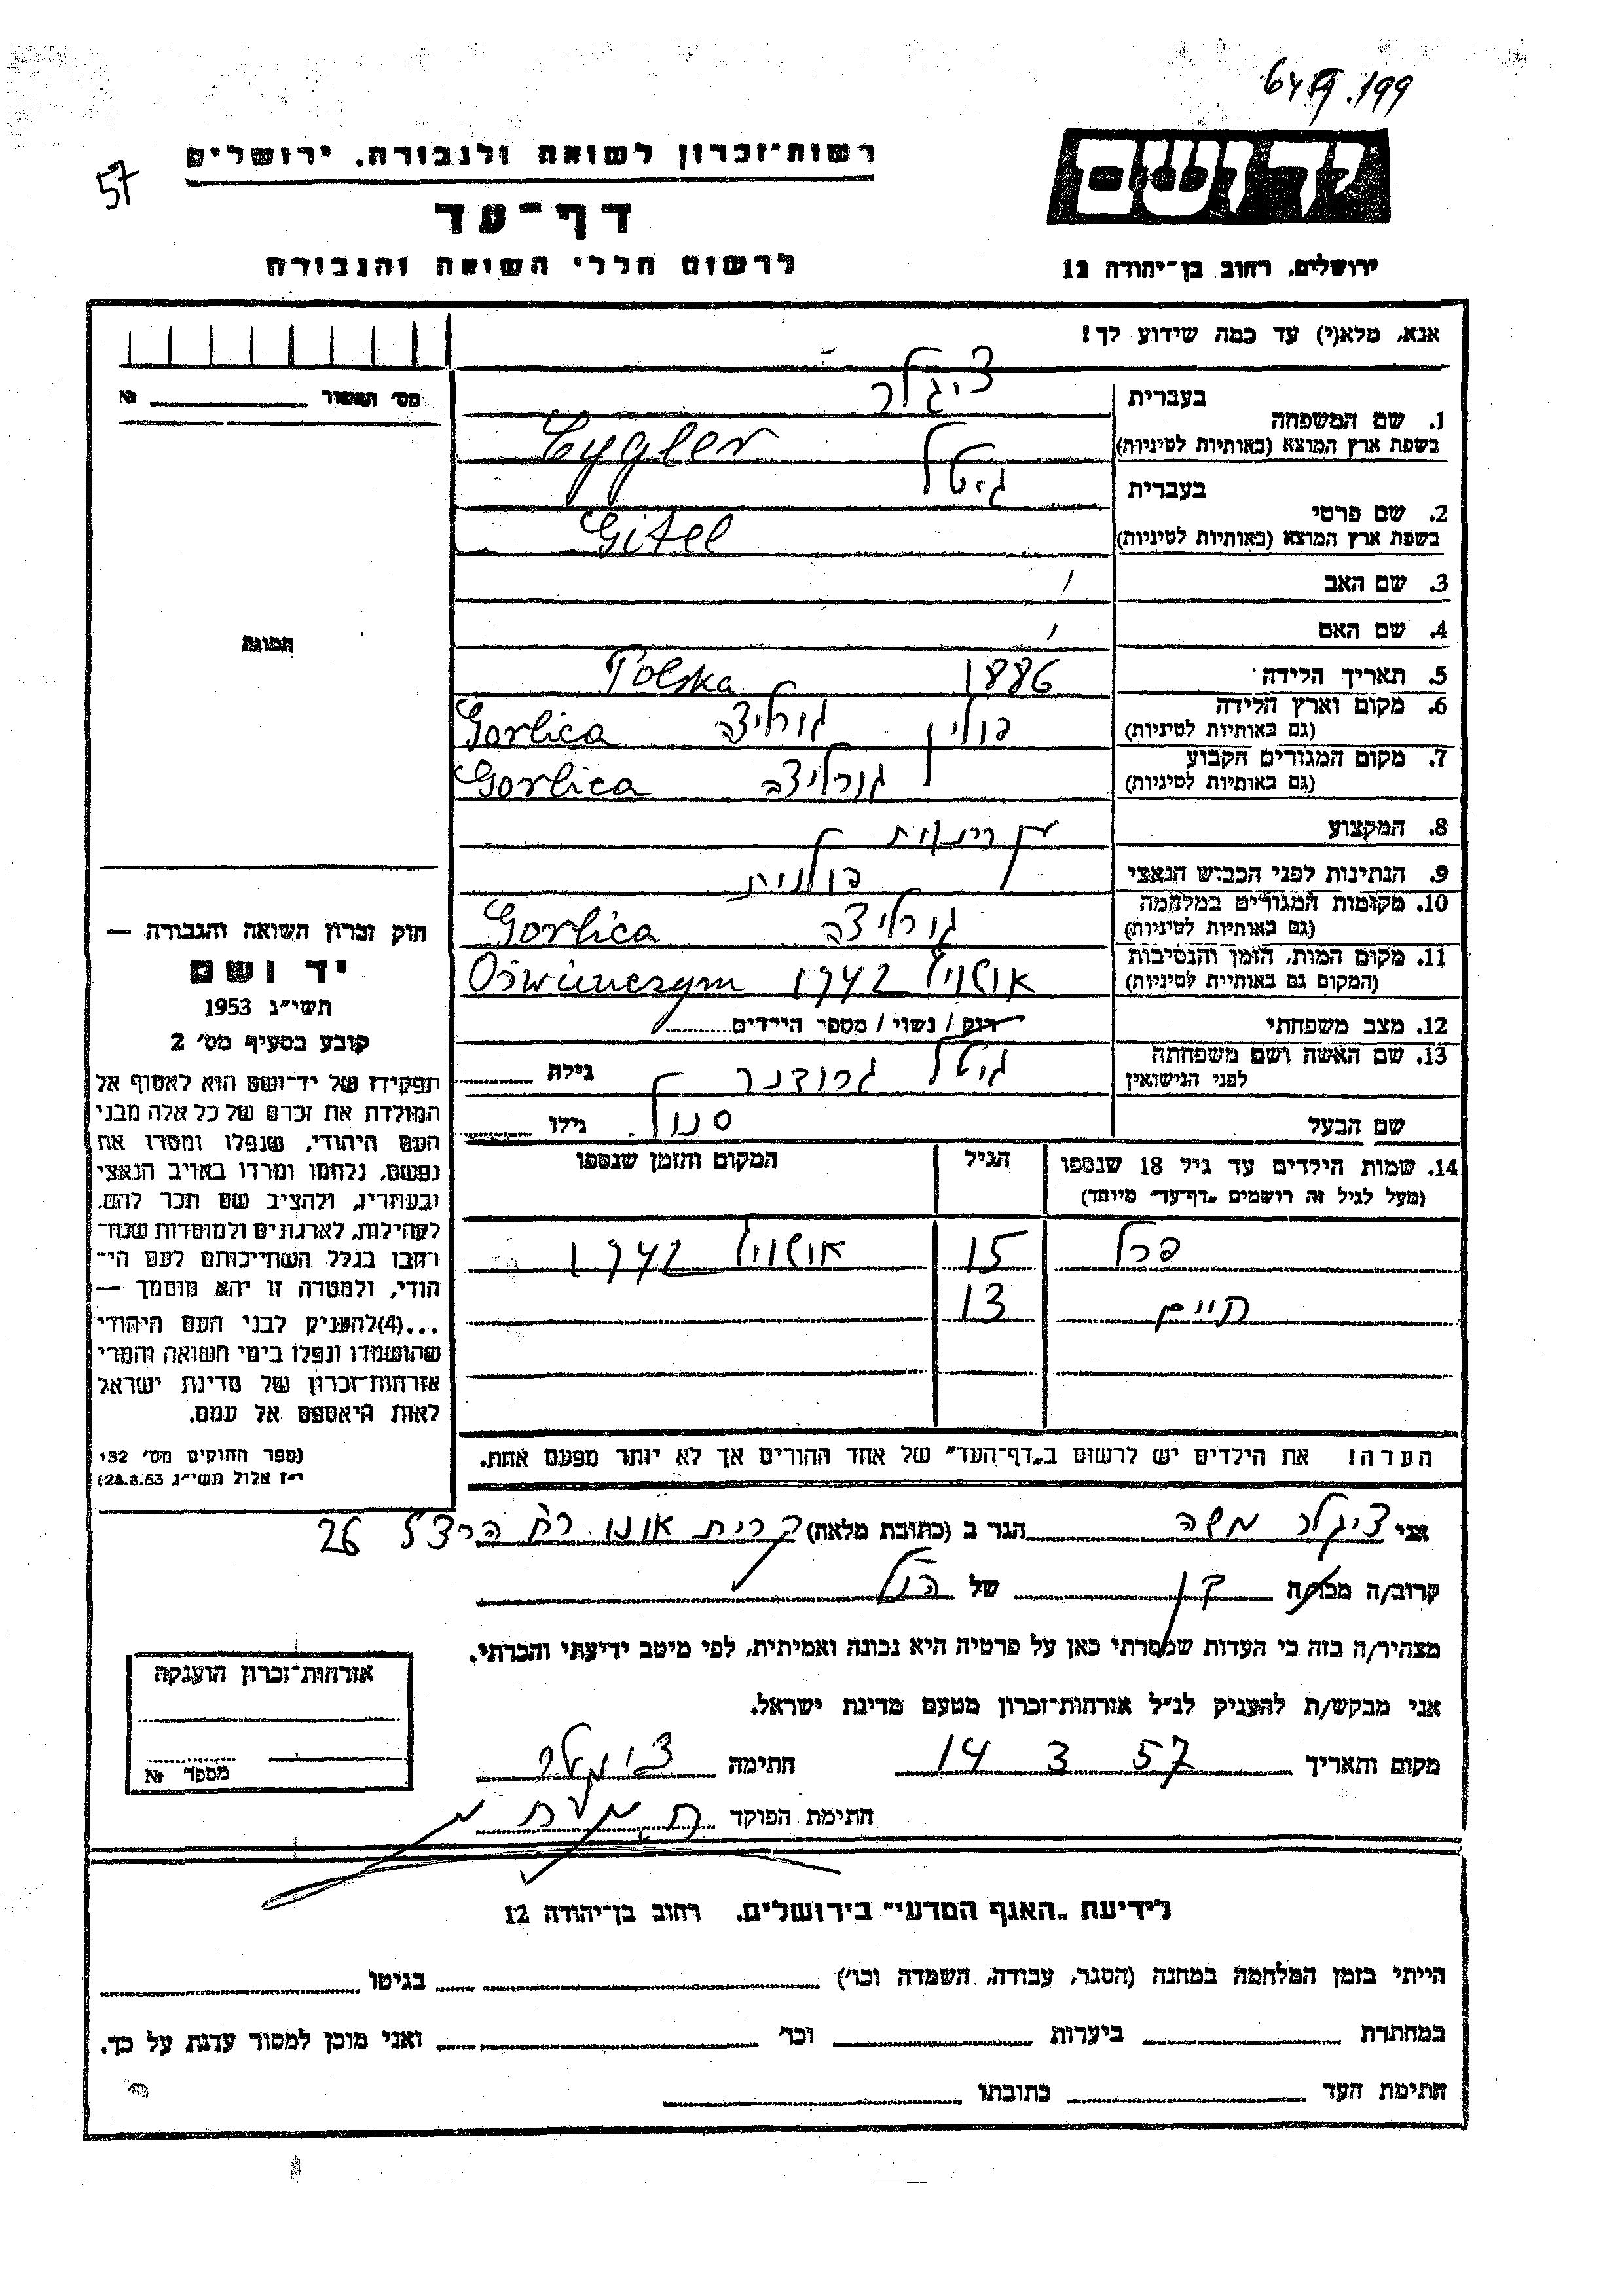 199
57
יד ושם
רשות־זכרון לשואה ולגבורה, ירושלים
דף־עד
לרשום חללי השואה והגבורה
ירושלים, רחוב בן־יהודה 12
אנא, מלא(י) עד כמה שידוע לך!
מס׳ תאשור №
1. שם המשפחה בעברית ציגלר
בשפת ארץ המוצא (באותיות לטיניות) Cygler
2. שם פרטי בעברית גיטל
בשפת ארץ המוצא (באותיות לטיניות) Gitel
3. שם האב
4. שם האם
5. תאריך הלידה 1886 Polska
6. מקום וארץ הלידה (גם באותיות לטיניות) פולין גורליצה Gorlica
7. מקום המגורים הקבוע (גם באותיות לטיניות) גורליצה Gorlica
8. המקצוע
9. הנתינות לפני הכבוש הנאצי פולנית
10. מקומות המגורים במלחמה (גם באותיות לטיניות) גורליצה Gorlica
11. מקום המות, הזמן והנסיבות (המקום גם באותיות לטיניות) 1942
12. מצב משפחתי רווק / נשוי / מספר הילדים
13. שם האשה ושם משפחתה לפני הנישואין גיטל גילה
שם הבעל גילו
14. שמות הילדים עד גיל 18 שנספו הגיל המקום והזמן שנספו
(מעל לגיל זה רושמים „דף־עד״ מיוחד)
פרל 15 1942
חיים 13
הערה! את הילדים יש לרשום ב„דף־העד״ של אחד ההורים אך לא יותר מפעם אחת.
תמונה
חוק זכרון השואה והגבורה —
יד ושם
תשי״ג 1953
קובע בסעיף מס׳ 2
תפקידו של יד־ושם הוא לאסוף אל
המולדת את זכרם של כל אלה מבני
העם היהודי, שנפלו ומסרו את
נפשם, נלחמו ומרדו באויב הנאצי
ובעוזריו, ולהציב שם וזכר להם,
לקהילות, לארגונים ולמוסדות שנח־
רבו בגלל השתייכותם לעם הי־
הודי, ולמטרה זו יהא מוסמך —
...(4)להעניק לבני העם היהודי
שהושמדו ונפלו בימי השואה והמרי
אזרחות־זכרון של מדינת ישראל
לאות היאספם אל עמם.
(ספר החוקים מס׳ 132
י״ז אלול תשי״ג 28.8.53)
אני ציגלר משה הגר ב (כתובת מלאה) קרית אונו רח הרצל 26
קרוב/ה מכר/ה בן של הנ״ל
מצהיר/ה בזה כי העדות שמסרתי כאן על פרטיה היא נכונה ואמיתית, לפי מיטב ידיעתי והכרתי.
אני מבקש/ת להעניק לנ״ל אזרחות־זכרון מטעם מדינת ישראל.
מקום ותאריך 14 3 57 חתימה ציגלר
חתימת הפוקד
אזרחות־זכרון הוענקה
מספר №
לידיעת „האגף המדעי״ בירושלים, רחוב בן־יהודה 12
הייתי בזמן המלחמה במחנה (הסגר, עבודה, השמדה וכו׳) בגיטו
במחתרת ביערות וכו׳ ואני מוכן למסור עדות על כך.
חתימת העד כתובתו